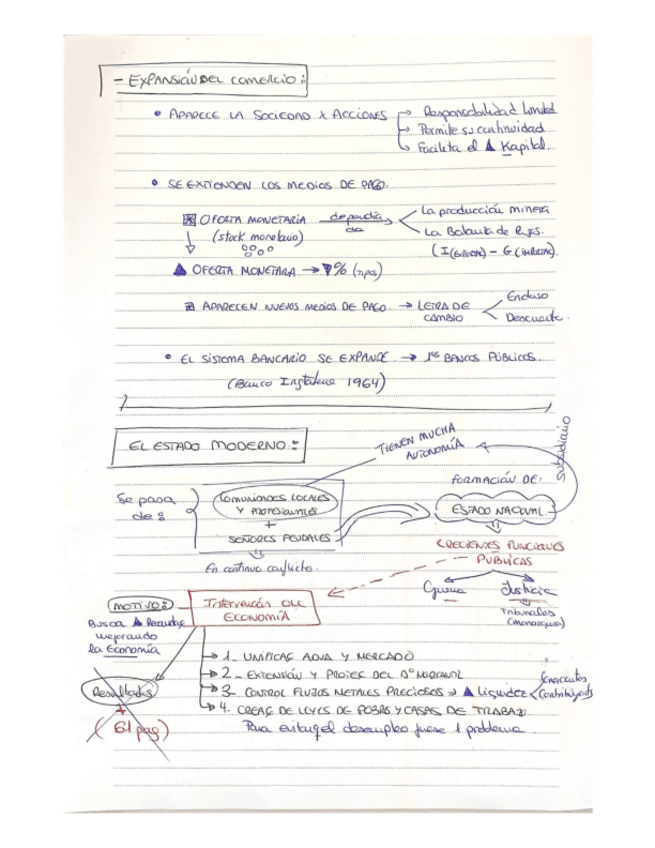 - EXPANSIÓN DEL COMERCIO:
• APARECE LA SOCIEDAD X ACCIONES → Responsabilidad Limitad
→ Permite su continuidad
→ Facilita el ▲ Kapital.
• SE EXTIENDEN LOS MEDIOS DE PAGO.
OFERTA MONETARIA depende de
La producción minera
(stock monetario)
La Balanza de Pagos.
▲ OFERTA MONETARIA → ▼% (tipos)
APARECEN NUEVOS MEDIOS DE PAGO → LETRA DE CAMBIO
Endoso
Descuento.
• EL SISTEMA BANCARIO SE EXPANDE → 1ºs BANCOS PÚBLICOS.
(Banco Inglaterra 1964)
EL ESTADO MODERNO:
TIENEN MUCHA
AUTONOMÍA
Subsidiario
Se pasa
de:
COMUNIDADES LOCALES
Y PROFESIONALES
+
SEÑORES FEUDALES
En continuo conflicto.
FORMACIÓN DE:
ESTADO NACIONAL.
CRECIENTES FUNCIONES
PÚBLICAS
Guerra
Justicia
Tribunales
(monarquía)
MOTIVO:
Busca ▲ Recaudac
mejorando
la Economía
Intervención EN
ECONOMÍA
Resultados
(61 pag)
1_ UNIFICAC ADUA Y MERCADO
2_ EXTENSIÓN Y PROTEC DEL Dº MERCANTIL
3_ CONTROL FLUJOS METALES PRECIOSOS → ▲ Liquidez
Contribuyents
4. CREAC DE LEYES DE POBRS Y CASAS DE TRABAJO
Para evitar q el desempleo fuese 1 problema